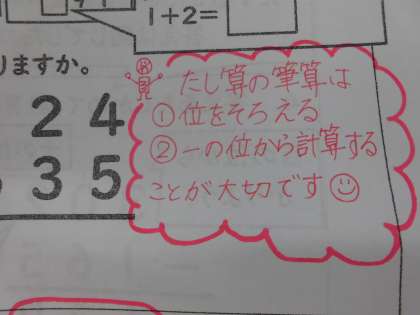 1+2=
りますか。
24
35
たし算の筆算は
①位をそろえる
②一の位から計算する
ことが大切です